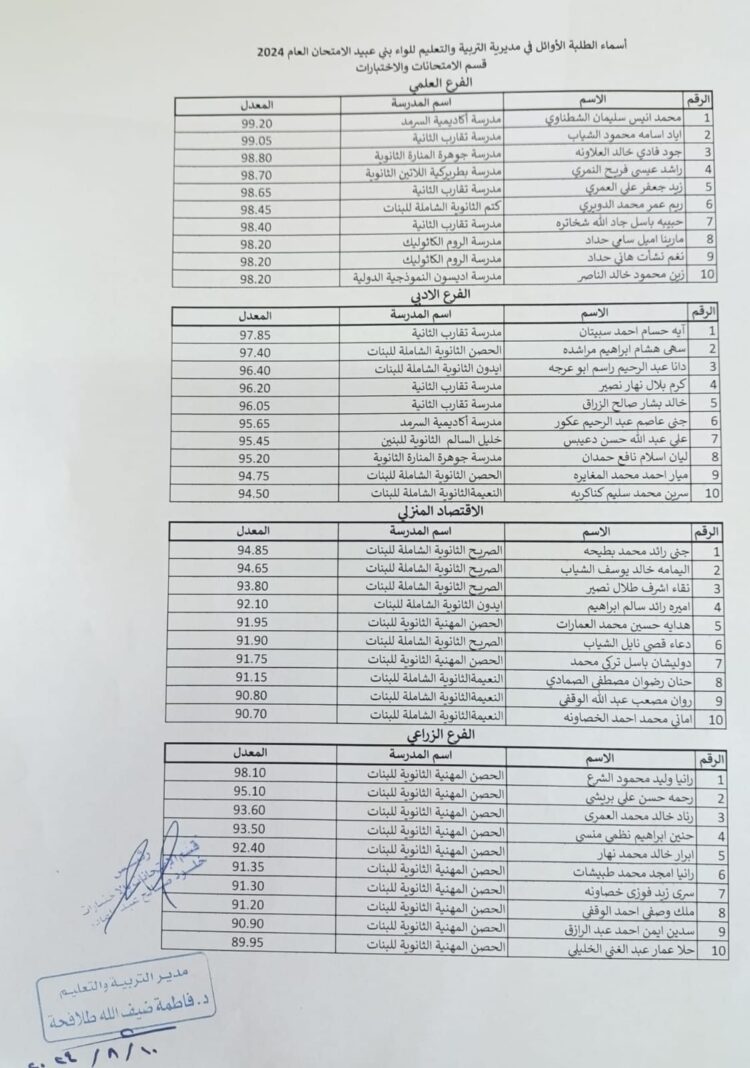 أسماء الطلبة الأوائل في مديرية التربية والتعليم للواء بني عبيد الامتحان العام 2024
قسم الامتحانات والاختبارات
الفرع العلمي
الرقم الاسم اسم المدرسة المعدل
1 محمد انيس سليمان الشطناوي مدرسة أكاديمية السرمد 99.20
2 اياد اسامه محمود الشياب مدرسة تقارب الثانية 99.05
3 جود فادي خالد العلاونه مدرسة جوهرة المنارة الثانوية 98.80
4 راشد عيسى فريح النمري مدرسة بطريركية اللاتين الثانوية 98.70
5 زيد جعفر علي العمري مدرسة تقارب الثانية 98.65
6 ريم عمر محمد الدويري كتم الثانوية الشاملة للبنات 98.45
7 حبيبه باسل جاد الله شخاتره مدرسة تقارب الثانية 98.40
8 مارينا اميل سامي حداد مدرسة الروم الكاثوليك 98.20
9 نغم نشأت هاني حداد مدرسة الروم الكاثوليك 98.20
10 زين محمود خالد الناصر مدرسة اديسون النموذجية الدولية 98.20
الفرع الادبي
الرقم الاسم اسم المدرسة المعدل
1 آيه حسام احمد سبيتان مدرسة تقارب الثانية 97.85
2 سهى هشام ابراهيم مراشده الحصن الثانوية الشاملة للبنات 97.40
3 دانا عبد الرحيم راسم ابو عرجه ايدون الثانوية الشاملة للبنات 96.40
4 كرم بلال نهار نصير مدرسة تقارب الثانية 96.20
5 خالد بشار صالح الزراق مدرسة تقارب الثانية 96.05
6 جنى عاصم عبد الرحيم عكور مدرسة أكاديمية السرمد 95.65
7 علي عبد الله حسن دعيبس خليل السالم الثانوية للبنين 95.45
8 ليان اسلام نافع حمدان مدرسة جوهرة المنارة الثانوية 95.20
9 ميار احمد محمد المغايره الحصن الثانوية الشاملة للبنات 94.75
10 سرين محمد سليم كناكريه النعيمةالثانوية الشاملة للبنات 94.50
الاقتصاد المنزلي
الرقم الاسم اسم المدرسة المعدل
1 جنى رائد محمد بطيحه الصريح الثانوية الشاملة للبنات 94.85
2 اليمامه خالد يوسف الشياب الصريح الثانوية الشاملة للبنات 94.65
3 نقاء اشرف طلال نصير الصريح الثانوية الشاملة للبنات 93.80
4 اميره رائد سالم ابراهيم ايدون الثانوية الشاملة للبنات 92.10
5 هدايه حسين محمد العمارات الحصن المهنية الثانوية للبنات 91.95
6 دعاء قصي نايل الشياب الصريح الثانوية الشاملة للبنات 91.90
7 دوليشان باسل تركي محمد الحصن المهنية الثانوية للبنات 91.75
8 حنان رضوان مصطفى الصمادي النعيمةالثانوية الشاملة للبنات 91.15
9 روان مصعب عبد الله الوقفي النعيمةالثانوية الشاملة للبنات 90.80
10 اماني محمد احمد الخصاونه النعيمةالثانوية الشاملة للبنات 90.70
الفرع الزراعي
الرقم الاسم اسم المدرسة المعدل
1 رانيا وليد محمود الشرع الحصن المهنية الثانوية للبنات 98.10
2 رحمه حسن علي بريشي الحصن المهنية الثانوية للبنات 95.10
3 رناد خالد محمد العمرى الحصن المهنية الثانوية للبنات 93.60
4 حنين ابراهيم نظمي منسي الحصن المهنية الثانوية للبنات 93.50
5 ابرار خالد محمد نهار الحصن المهنية الثانوية للبنات 92.40
6 رانيا امجد محمد طبيشات الحصن المهنية الثانوية للبنات 91.35
7 سرى زيد فوزى خصاونه الحصن المهنية الثانوية للبنات 91.30
8 ملك وصفي احمد الوقفي الحصن المهنية الثانوية للبنات 91.20
9 سدين ايمن احمد عبد الرازق الحصن المهنية الثانوية للبنات 90.90
10 حلا عمار عبد الغني الخليلي الحصن المهنية الثانوية للبنات 89.95
رئيس
قسم الامتحانات والاختبارات
خلود
مدير التربية والتعليم
د. فاطمة ضيف الله طلافحة
٢٠٢٤ / ٨ / ١٠